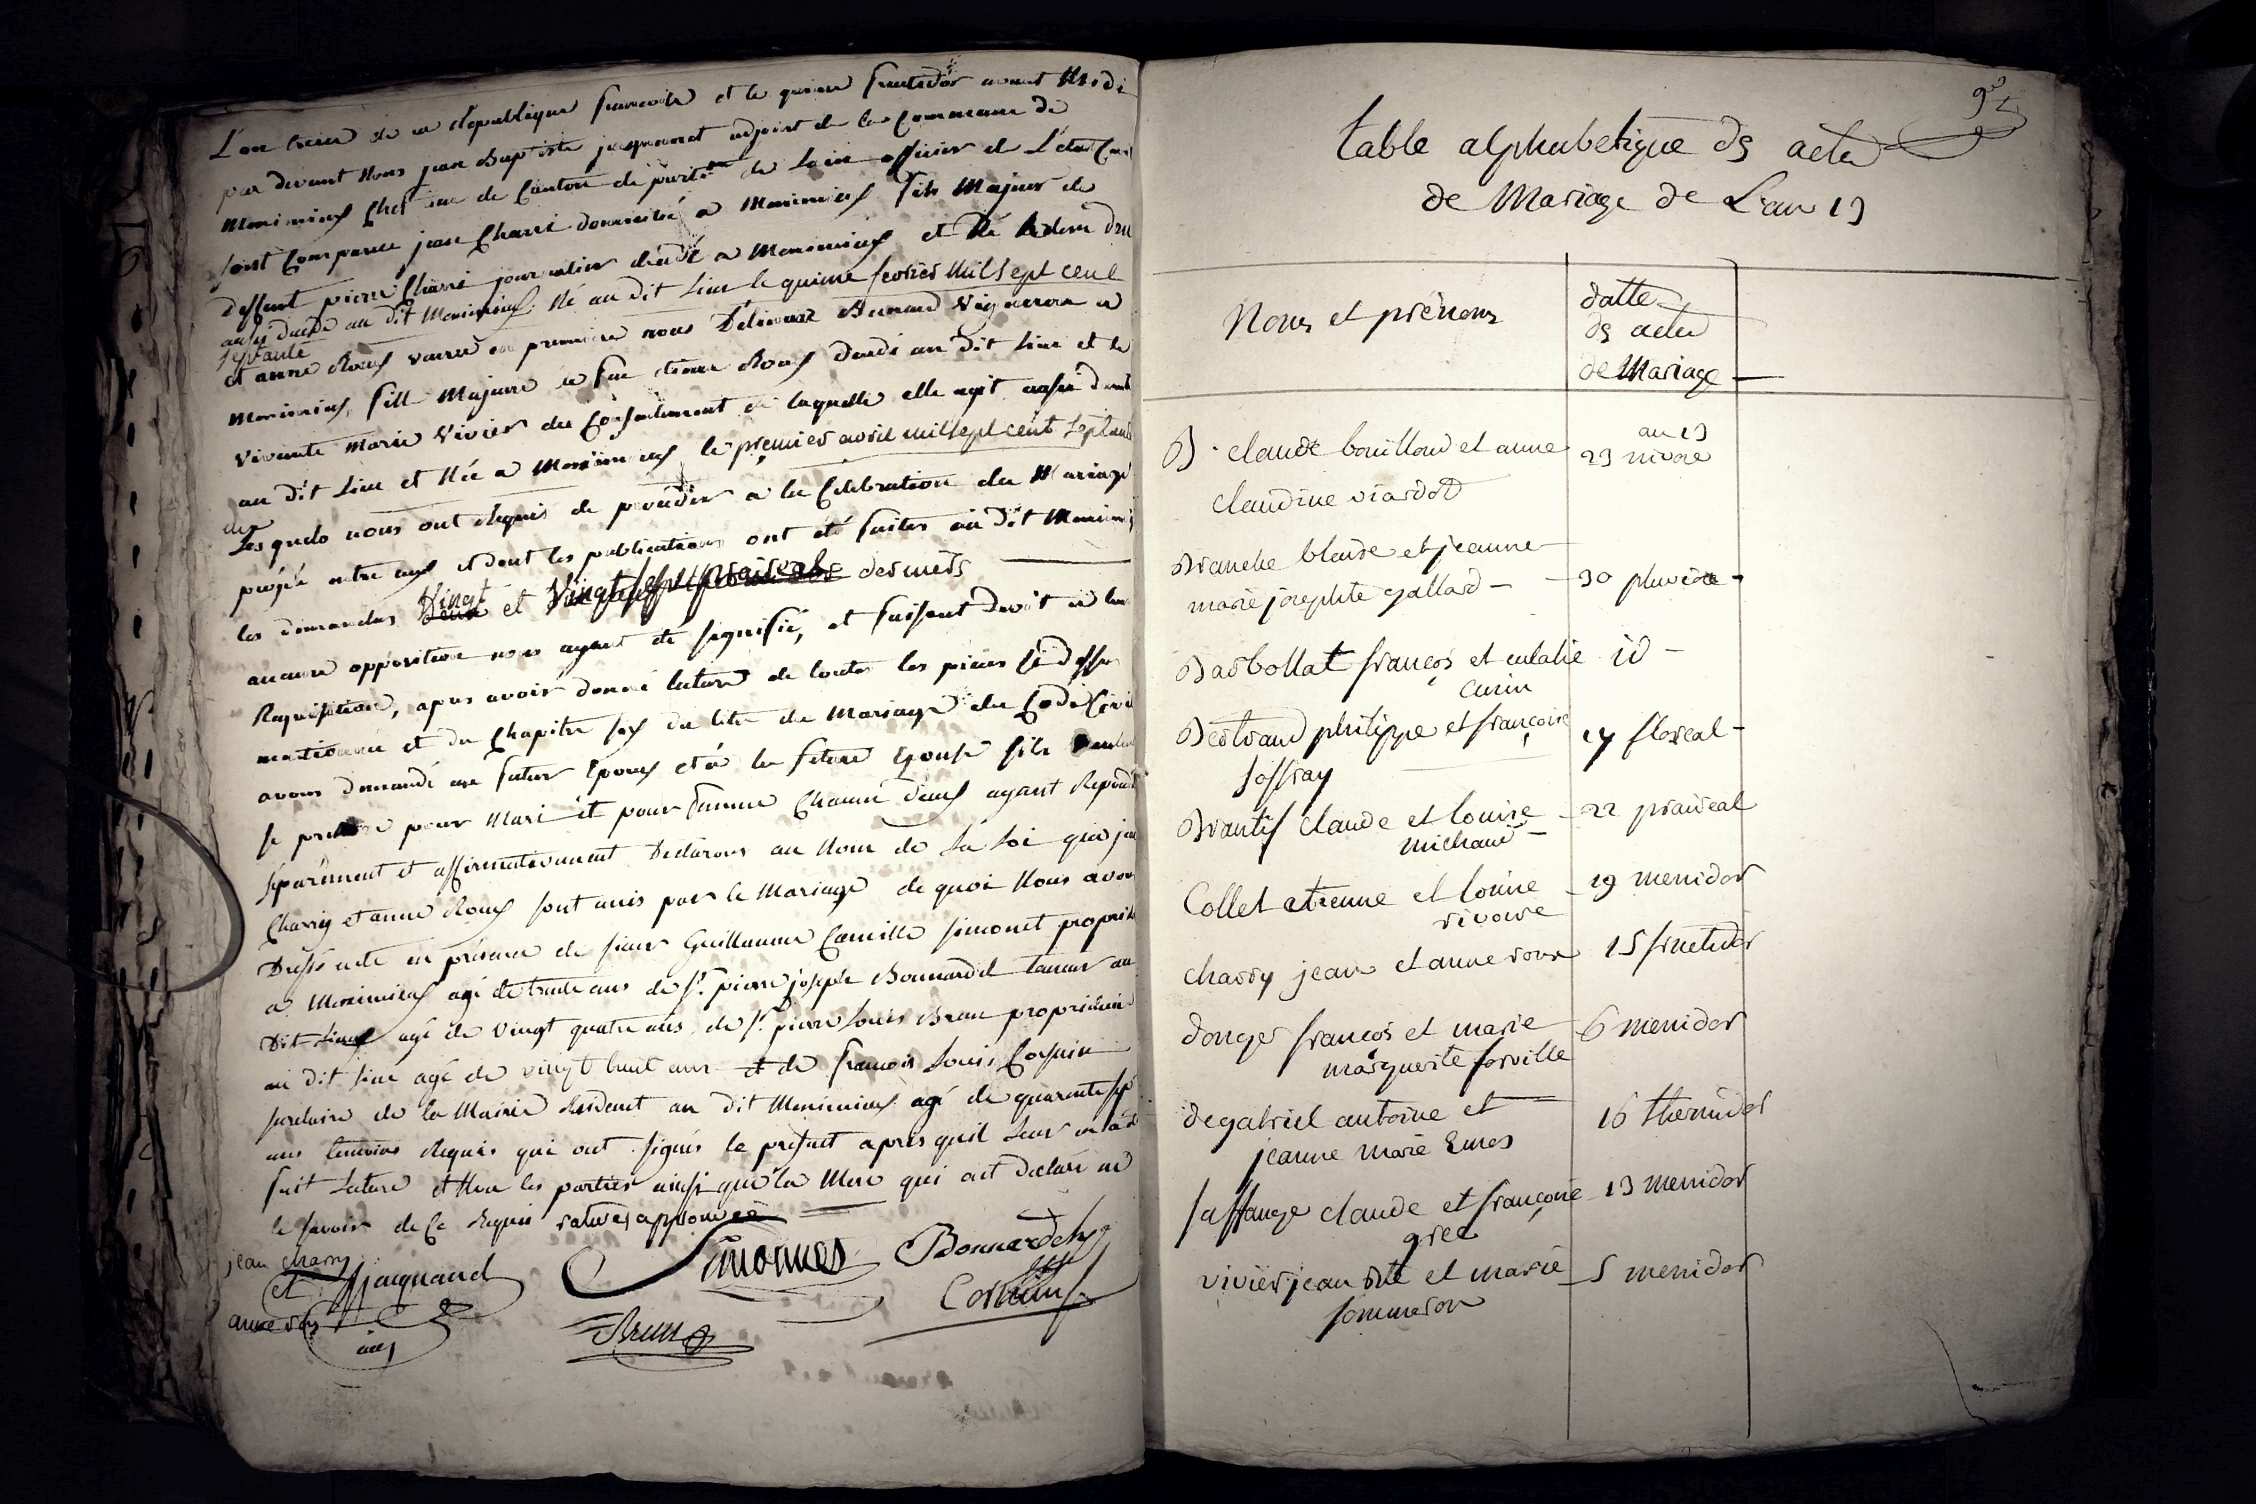 L'an treize de la république francoise et le quinze fructidor avant Midi
par devant Nous jean Baptiste jacquand adjoint de la Commune de
Meximieux Chef lieu de Canton dépártemt de Lain officier de L'état Civil
sont Comparus jean Charri domicilié a Meximieux fils Majeur de
deffunt pierre Charri journalier décédé a Meximieux et de
aussi décédé au dit Meximieux Né au dit Lieu le quinze fevrier Mil sept cent
septante
et anne Roux veuve en premiere nous Bernard Vigneron a
Meximieux, fille Majeure de feu etienne Roux décédé au dit Lieu et de
vivante Marie Vivier du Consentement de laquelle elle agit
au dit Lieu et Née a Meximieux le premier avril mil sept cent septante
Lesquels nous ont Requis de procéder a la Célébration du Mariage
projété entre eux et dont les publications ont été faites au dit Meximieux
les dimanches Vingt et Vingt sept prairial derniers
aucune opposition nous ayant été signifié, et faisant droit a la
Requisition, apres avoir donné lecture de toutes les pieces ci dessus
mentionnée et du Chapitre six du titre du Mariage du Code Civil
avons demandé au futur Epoux et a la future Epouse sils veulent
se prendre pour Mari et pour femme Chacun d'eux ayant Répondu
séparément et affirmativement Declarons au Nom de La Loi que jean
Charry et anne Roux sont unis par le Mariage de quoi Nous avons
Dressé acte en présence de sieur Guillaume Camille simonet propriétaire
a Meximieux agé de trente ans de sr. pierre joseph Bonnardel tanneur au
Dit Lieu agé de vingt quatre ans de sr. pierre Louis Brun propriétaire
au dit Lieu agé de vingt huit ans et de francois Louis
secretaire de la Mairie Résident au dit Meximieux agé de quarante sept
ans temoins Requis qui ont signés le present apres quil Leur en a été
fait Lecture et Non les parties ainsi que la Mere qui ont déclaré ne
le savoir de Ce Requis ratures approuvée
jean charry
et Jacquand
anne roux
Bonnardel
Brun
table alphabetique ds actes
de Mariage de L'an 13
Noms et prénoms
datte
ds actes
de Mariage
B. claude bouilloud et anne
an 13
23 nivose
claudine viardot
Branche blaise et jeanne
marie josephte gallard - 30 pluviose -
Barbollat françois et eulalie id -
curin
Bertrand philippe et françoise
joffray 17 floreal -
Brantif claude et louise - 22 praireal
michaud -
Collet etienne et louise - 19 messidor
rivoire
charry jean et anne roux 15 fructidor
donge françois et marie - 6 messidor
marguerite forville
degabriel antoine et
jeanne marie 16 thermidor
saffange claude et françoise - 13 messidor
grec
vivier jean bte et marie - 5 messidor
sommeron